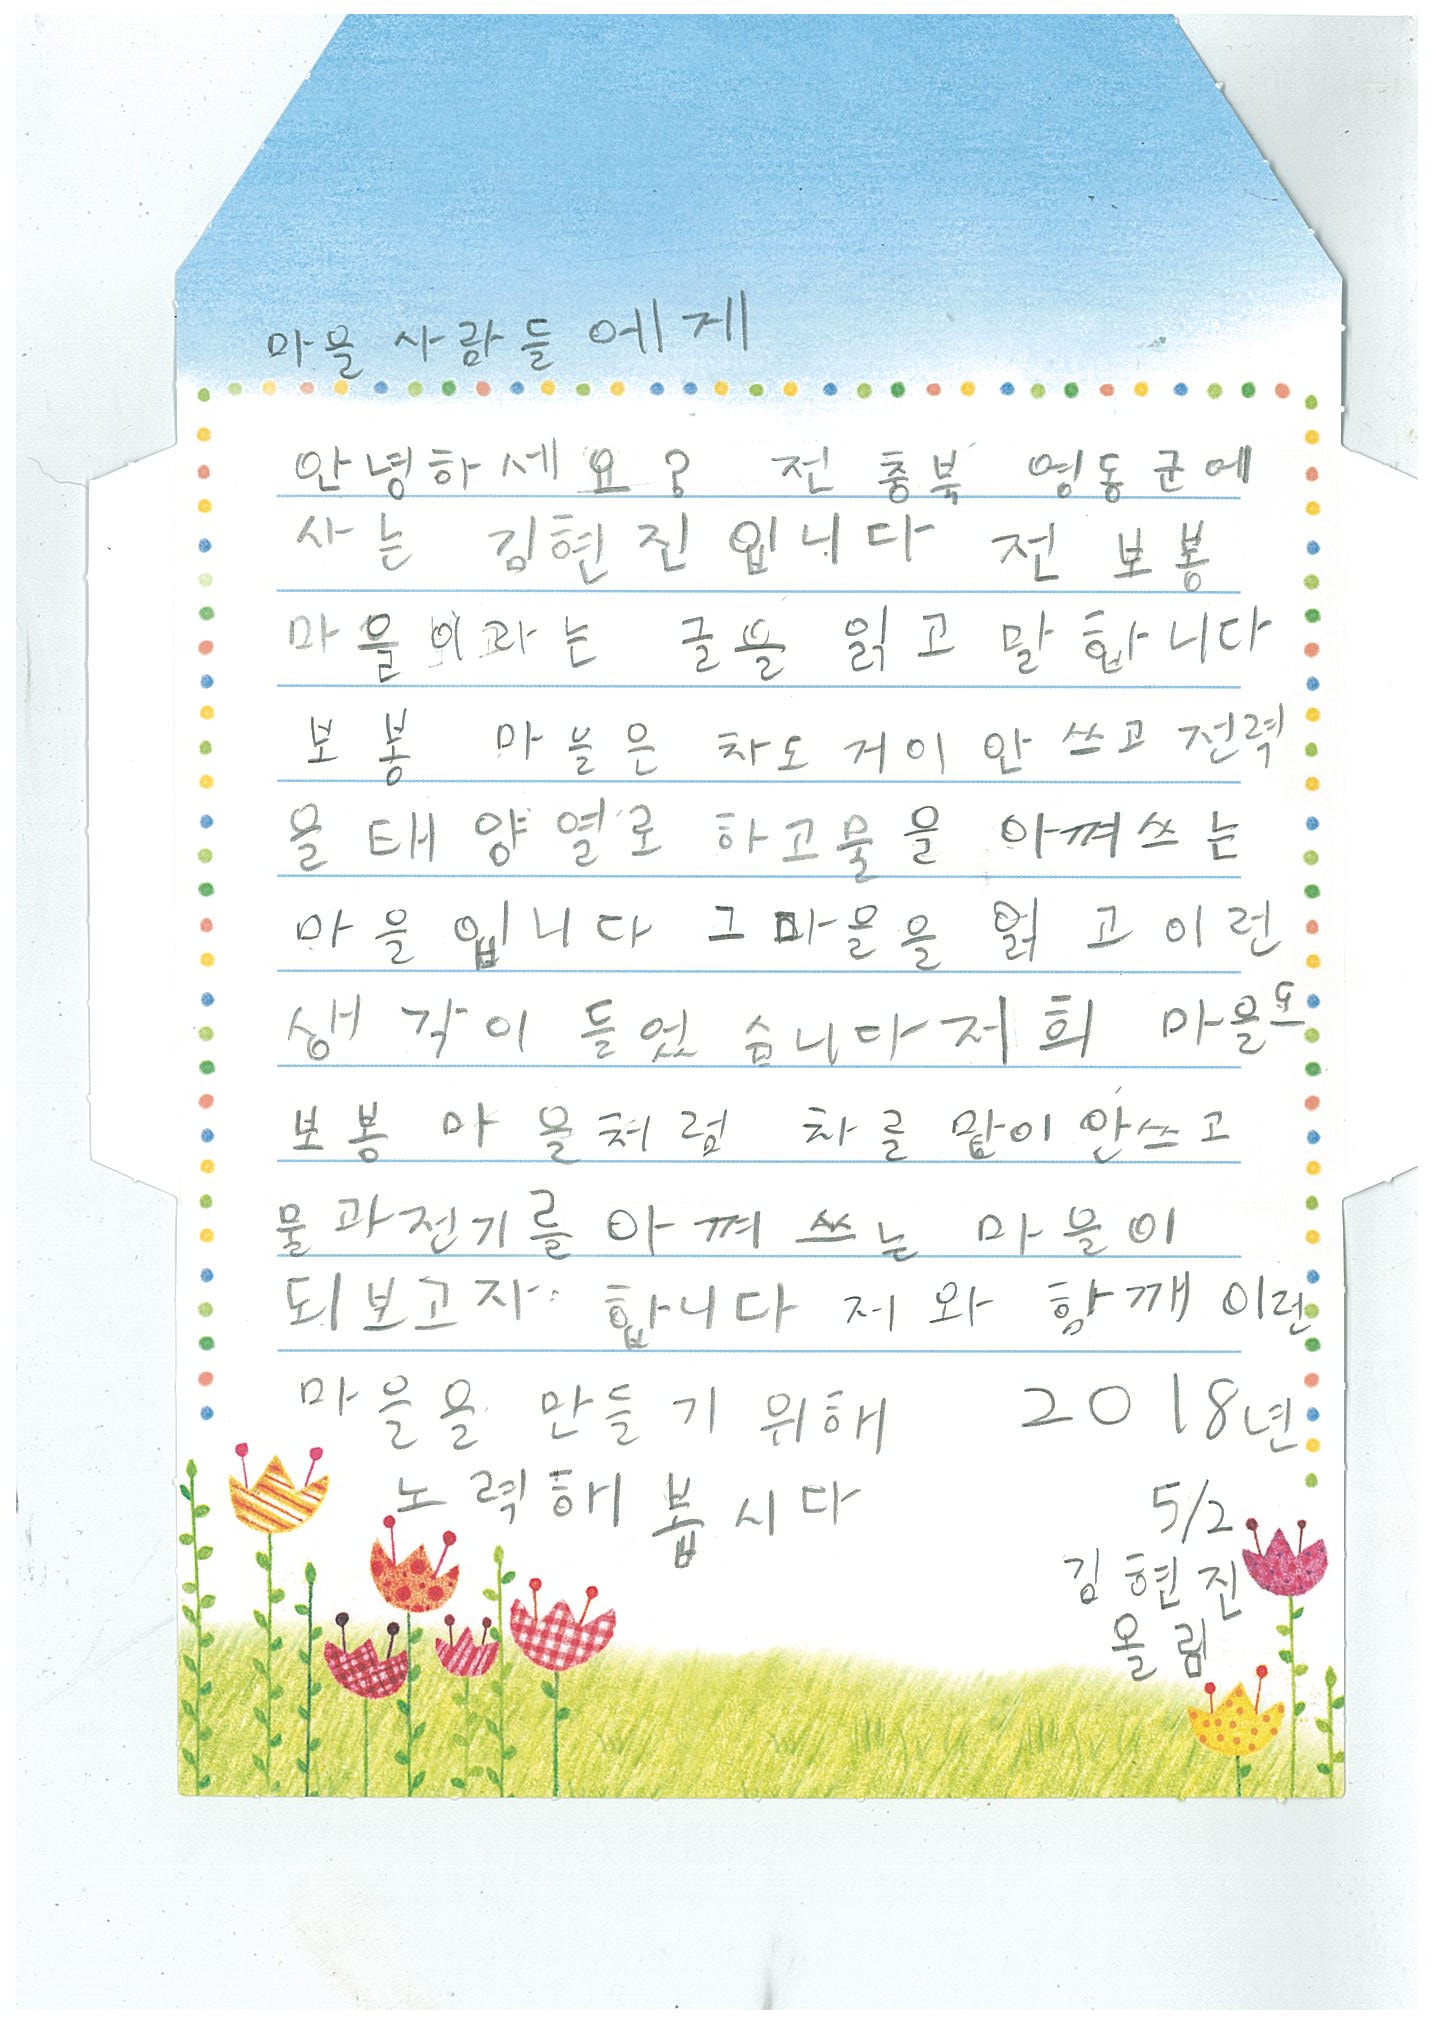 마을 사람들에게
안녕하세요? 전 충북 영동군에
사는 김현진입니다 전 보봉
마을이라는 글을 읽고 말합니다
보봉 마을은 차도 거이 안 쓰고 전력
을 태양열로 하고물을 아껴쓰는
마을입니다 그마을을 읽고이런
생각이 들었습니다저희 마을도
보봉 마을처럼 차를 맡이안쓰고
물과전기를 아껴 쓰는 마을이
되보고자 합니다 저와 함깨 이런
마을을 만들기 위해 2018년
노력해 봅시다 5/2
김현진
올림